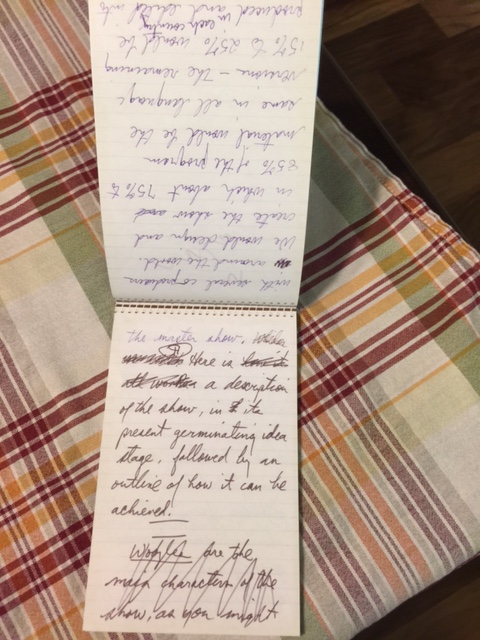 with several coproducers
around the world.
We would design and
create the show
in which about 75% to
85% of the program
material would be the
same in all language
versions – the remaining
15% to 25% would be
in each country
produced and laced into
the master show.
Here is
a description
of the show, in its
present germinating idea
stage, followed by an
outline of how it can be
achieved:
are the
main characters of the
show, as you might